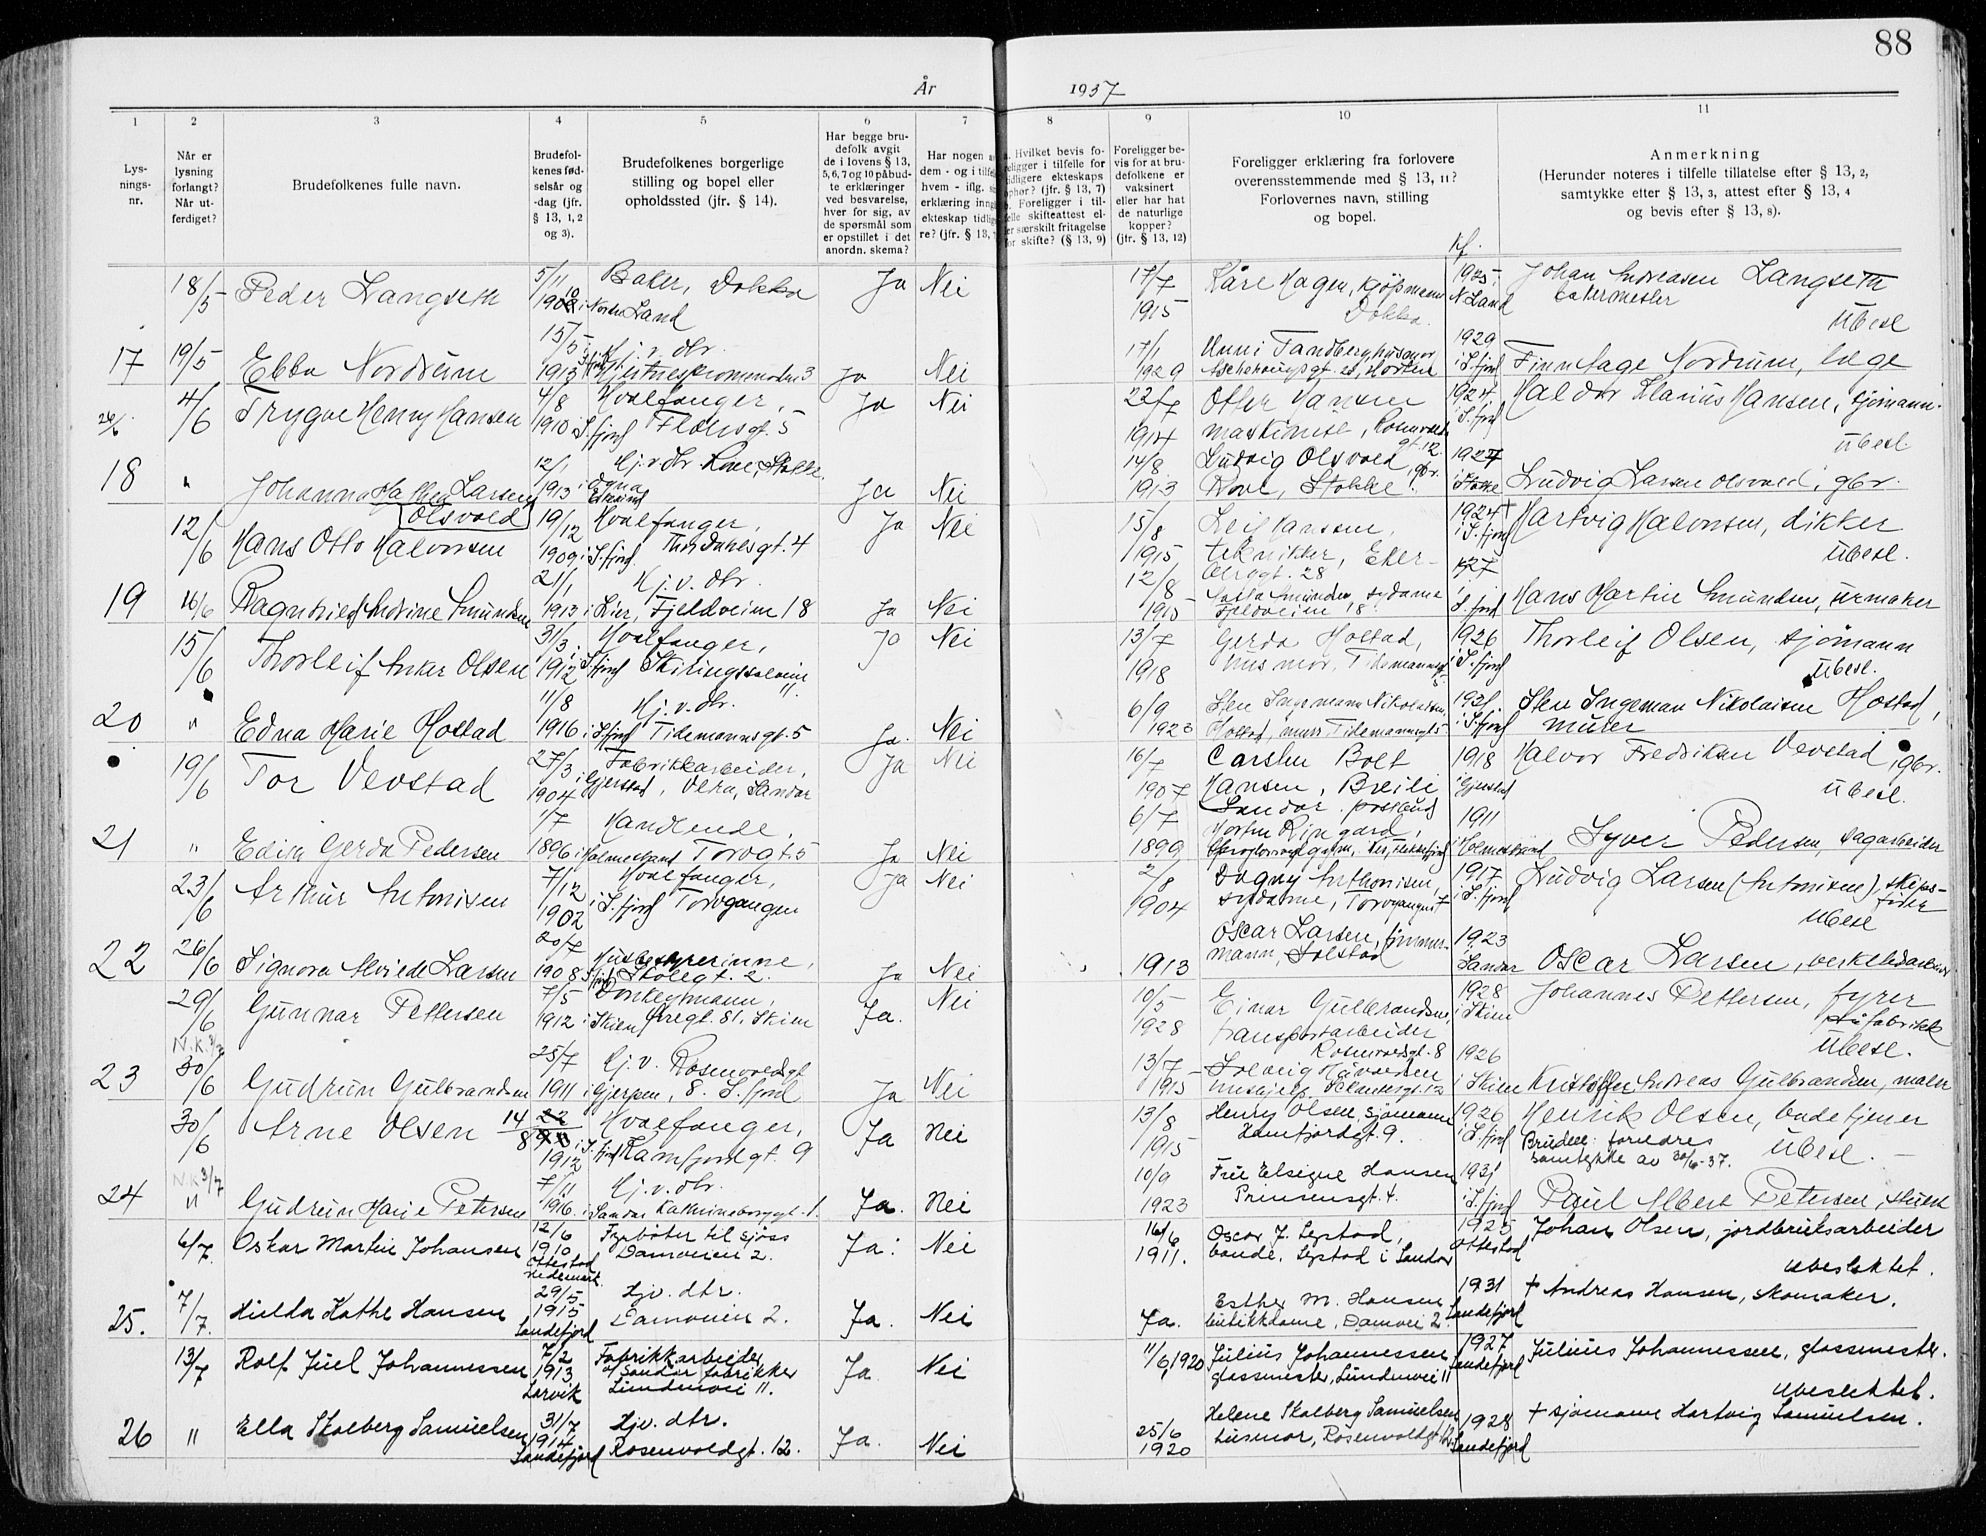 88
År 1937
1 2 3 4 5 6 7 8 9 10 11
Lys-
nings-
nr.
Når er
lysning
forlangt?
Når ut-
ferdiget?
Brudefolkenes fulle navn.
Brudefol-
kenes fød-
selsår og
-dag (jfr.
§ 13, 1, 2
og 3).
Brudefolkenes borgerlige
stilling og bopel eller
opholdssted (jfr. § 14).
Har begge bru-
defolk avgit
de i lovens § 13,
5, 6, 7 og 10 påbud-
te erklæringer
ved besvarelse,
hver for sig, av
de spørsmål som
er opstillet i det
anordn. skema?
Har nogen a
dem - og i tilfe
hvem - iflg. s
erklæring inng
ekteskap tidlig
re? (jfr. § 13,
a. Hvilket bevis fo-
religger i tilfelle for
tidligere ekteskaps
ophør? (jfr. § 13, 7)
b. Foreligger i til-
felle skifteattest el-
er særskilt fritagelse
for skifte? (§ 13, 9)
Foreligger be-
vis for at bru-
defolkene er
vaksinert
eller har hat
de naturlige
kopper?
(jfr. § 13, 12)
Foreligger erklæring fra forlovere
overensstemmende med § 13, 11?
Forlovernes navn, stilling
og bopel.
Anmerkning
(Herunder noteres i tilfelle tillatelse efter § 13, 2,
samtykke efter § 13, 3, attest efter § 13, 4
og bevis efter § 13, 8).
Kf.
18/5 Peder Langseth 5/11 Baker, Dokka Ja Nei 17/7 1915 Kåre Hagen, kjøpmann Dokka. 1925 N. Land Johan Andreasen Langseth bakermester
Nordre Land
Ubesl
17 19/5 Ebba Nordrum 15/5 1913 Hj. v. dr. Ja Nei 17/1 1929 Unni Tandberg, husmor 1929 i S. fjord Finn Hage Nordrum, læge
26/6 4/6 Trygve Henry Hansen 4/8 1910 i S. fjord Hvalfanger, Florsgt. 5 Ja Nei 22/7 1914 Otter Hansen maskinist, Rosenvoldsgt. 12 1924 i S. fjord Haldor Klarius Hansen, sjømann.
ubesl
18 " Johanna Mathea Larsen Olsvold 12/1 1913 i Hj. v. dr. Rove, Stokke. Ja Nei 14/8 1913 Ludvig Olsvold, gbr. Rove, Stokke. 1927 i Stokke Ludvig Larsen Olsvold, gbr.
12/6 Hans Otto Halvorsen 19/12 1909 i S. fjord Hvalfanger, Thor Dahlsgt. 4 Ja Nei 15/8 1915 Leif Hansen, tekniker 1924 i S. fjord Hartvig Halvorsen, dikker
ubesl.
19 16/6 Ragnhild Andrine Amundsen 21/1 1913 i Hj. v. dr. Lier, Fjeldveien 18 Ja Nei 12/8 1915 Amundsen, sydame Fjeldveien 18. 1927 i S. fjord Hans Martin Amundsen, urmaker
15/6 Thorleif Anker Olsen 31/3 1912 i S. fjord Hvalfanger, 11 Ja Nei 13/7 1918 Gerda Hostad, husmor, Tidemannsgt. 5 1926 i S. fjord Thorleif Olsen, sjømann
ubesl.
20 " Edna Marie Hostad 11/8 1916 i S. fjord Hj. v. dr. Tidemannsgt. 5 Ja. Nei 6/9 1923 Sten Ingemann Nikolaisen Hostad, murer Tidemannsgt. 5 1931 i S. fjord Sten Ingeman Nikolaisen Hostad, murer
19/6 Tor Vevstad 27/3 1904 i Gjerstad Fabrikkarbeider, Vera, Sandar Ja Nei 16/7 1907 Carsten Bolt Hansen, Breili Sandar. postbud 1918 i Gjerstad Halvor Fredriksen Vevstad, gbr.
ubesl.
21 " Edith Gerda Pedersen 1/7 1896 i Holmestrand Handlende, Torvgt. 5 Ja Nei 6/7 1899 Morten Ringard, 1911 i Holmestrand Syver Pedersen, sagarbeider
23/6 Arthur Antonisen 7/12 1902 i S. fjord Hvalfanger, Torvgangen Ja Nei 2/8 1904 Dagny Anthonisen, sydame, Torvgangen 7 1917 i S. fjord Ludvig Larsen (Antonisen), skips-
fører
Ubesl
22 26/6 Signora Alvilde Larsen 20/7 1908 S. fjord Husbestyrerinne, Skolegt. 2. Ja Nei 1913 Oscar Larsen, tømmer-
mann, Solstad 1923 Sandar Oscar Larsen, verkstedarbeider
29/6 Gunnar Pettersen 7/5 1912 i Skien Donkeymann, gt. 81. Skien Ja. Nei 10/5 1928 Einar Gulbrandsen, transportarbeider Rosenvoldsgt. 8 1928 i Skien Johannes Pettersen, fyrer
på fabrikk
Ubesl.
N.K. 3/7
23 30/6 Gudrun Gulbrandsen 25/7 1911 i Gjerpen Hj. v. Rosenvoldsgt. 8. S. fjord Ja Nei 13/7 1915 Solveig 1926 i Skien Kristoffer Andreas Gulbrandsen, maler
30/6 Arne Olsen 14/8 1912 i S. fjord Hvalfanger, Kamfjordgt. 9 Ja Nei 13/8 1915 Henry Olsen sjømann Kamfjordgt. 9. 1926 i S. fjord Henrik Olsen, badetjener
Brudens foreldres
samtykke av 30/6-37. Ubesl.
N.K. 3/7
24 " Gudrun Marie Petersen 7/11 1916. i Sandar Hj. v. dr. Kathrineborggt. 1. Ja. Nei 10/9 1923 Fru Elsigne Hansen Prinsensgt. 4. 1931 i S. fjord Paul Albert Petersen,
6/7. Oskar Martin Johansen 12/6 1910 Ottestad Hedemark. Fyrbøter til sjøss Damveien 2. Ja. Nei 16/6 1911. Oscar J. Lystad, bonde, Lystad i Sandar 1925 Ottestad Johan Olsen, jordbruksarbeider
ubeslektet.
25. 7/7. Hilda Kathe Hansen 29/5 1915 Sandefjord Hjv. dtr. Damveien 2. Ja. Nei Ja. Esther M. Hansen butikkdame, Damvei 2. 1931 Sandefjord † Andreas Hansen, skomaker.
13/7 Rolf Juel Johannessen 7/2 1913 Larvik Fabrikkarbeider v/ Sandar fabrikker Lundenvei 11. Ja. Nei 11/6 1920 Julius Johannessen glassmester, Lundenvei 11 1927 Sandefjord Julius Johannessen, glassmester.
Ubeslektet.
26 " Ella Skalberg Samuelsen 31/7 1914 Sandefjord Hjv. dtr. Rosenvoldgt. 12. Ja. Nei 25/6 1920 Helene Skalberg Samuelsen husmor, Rosenvoldgt. 12. 1928 Sandefjord † sjømann Hartvig Samuelsen.